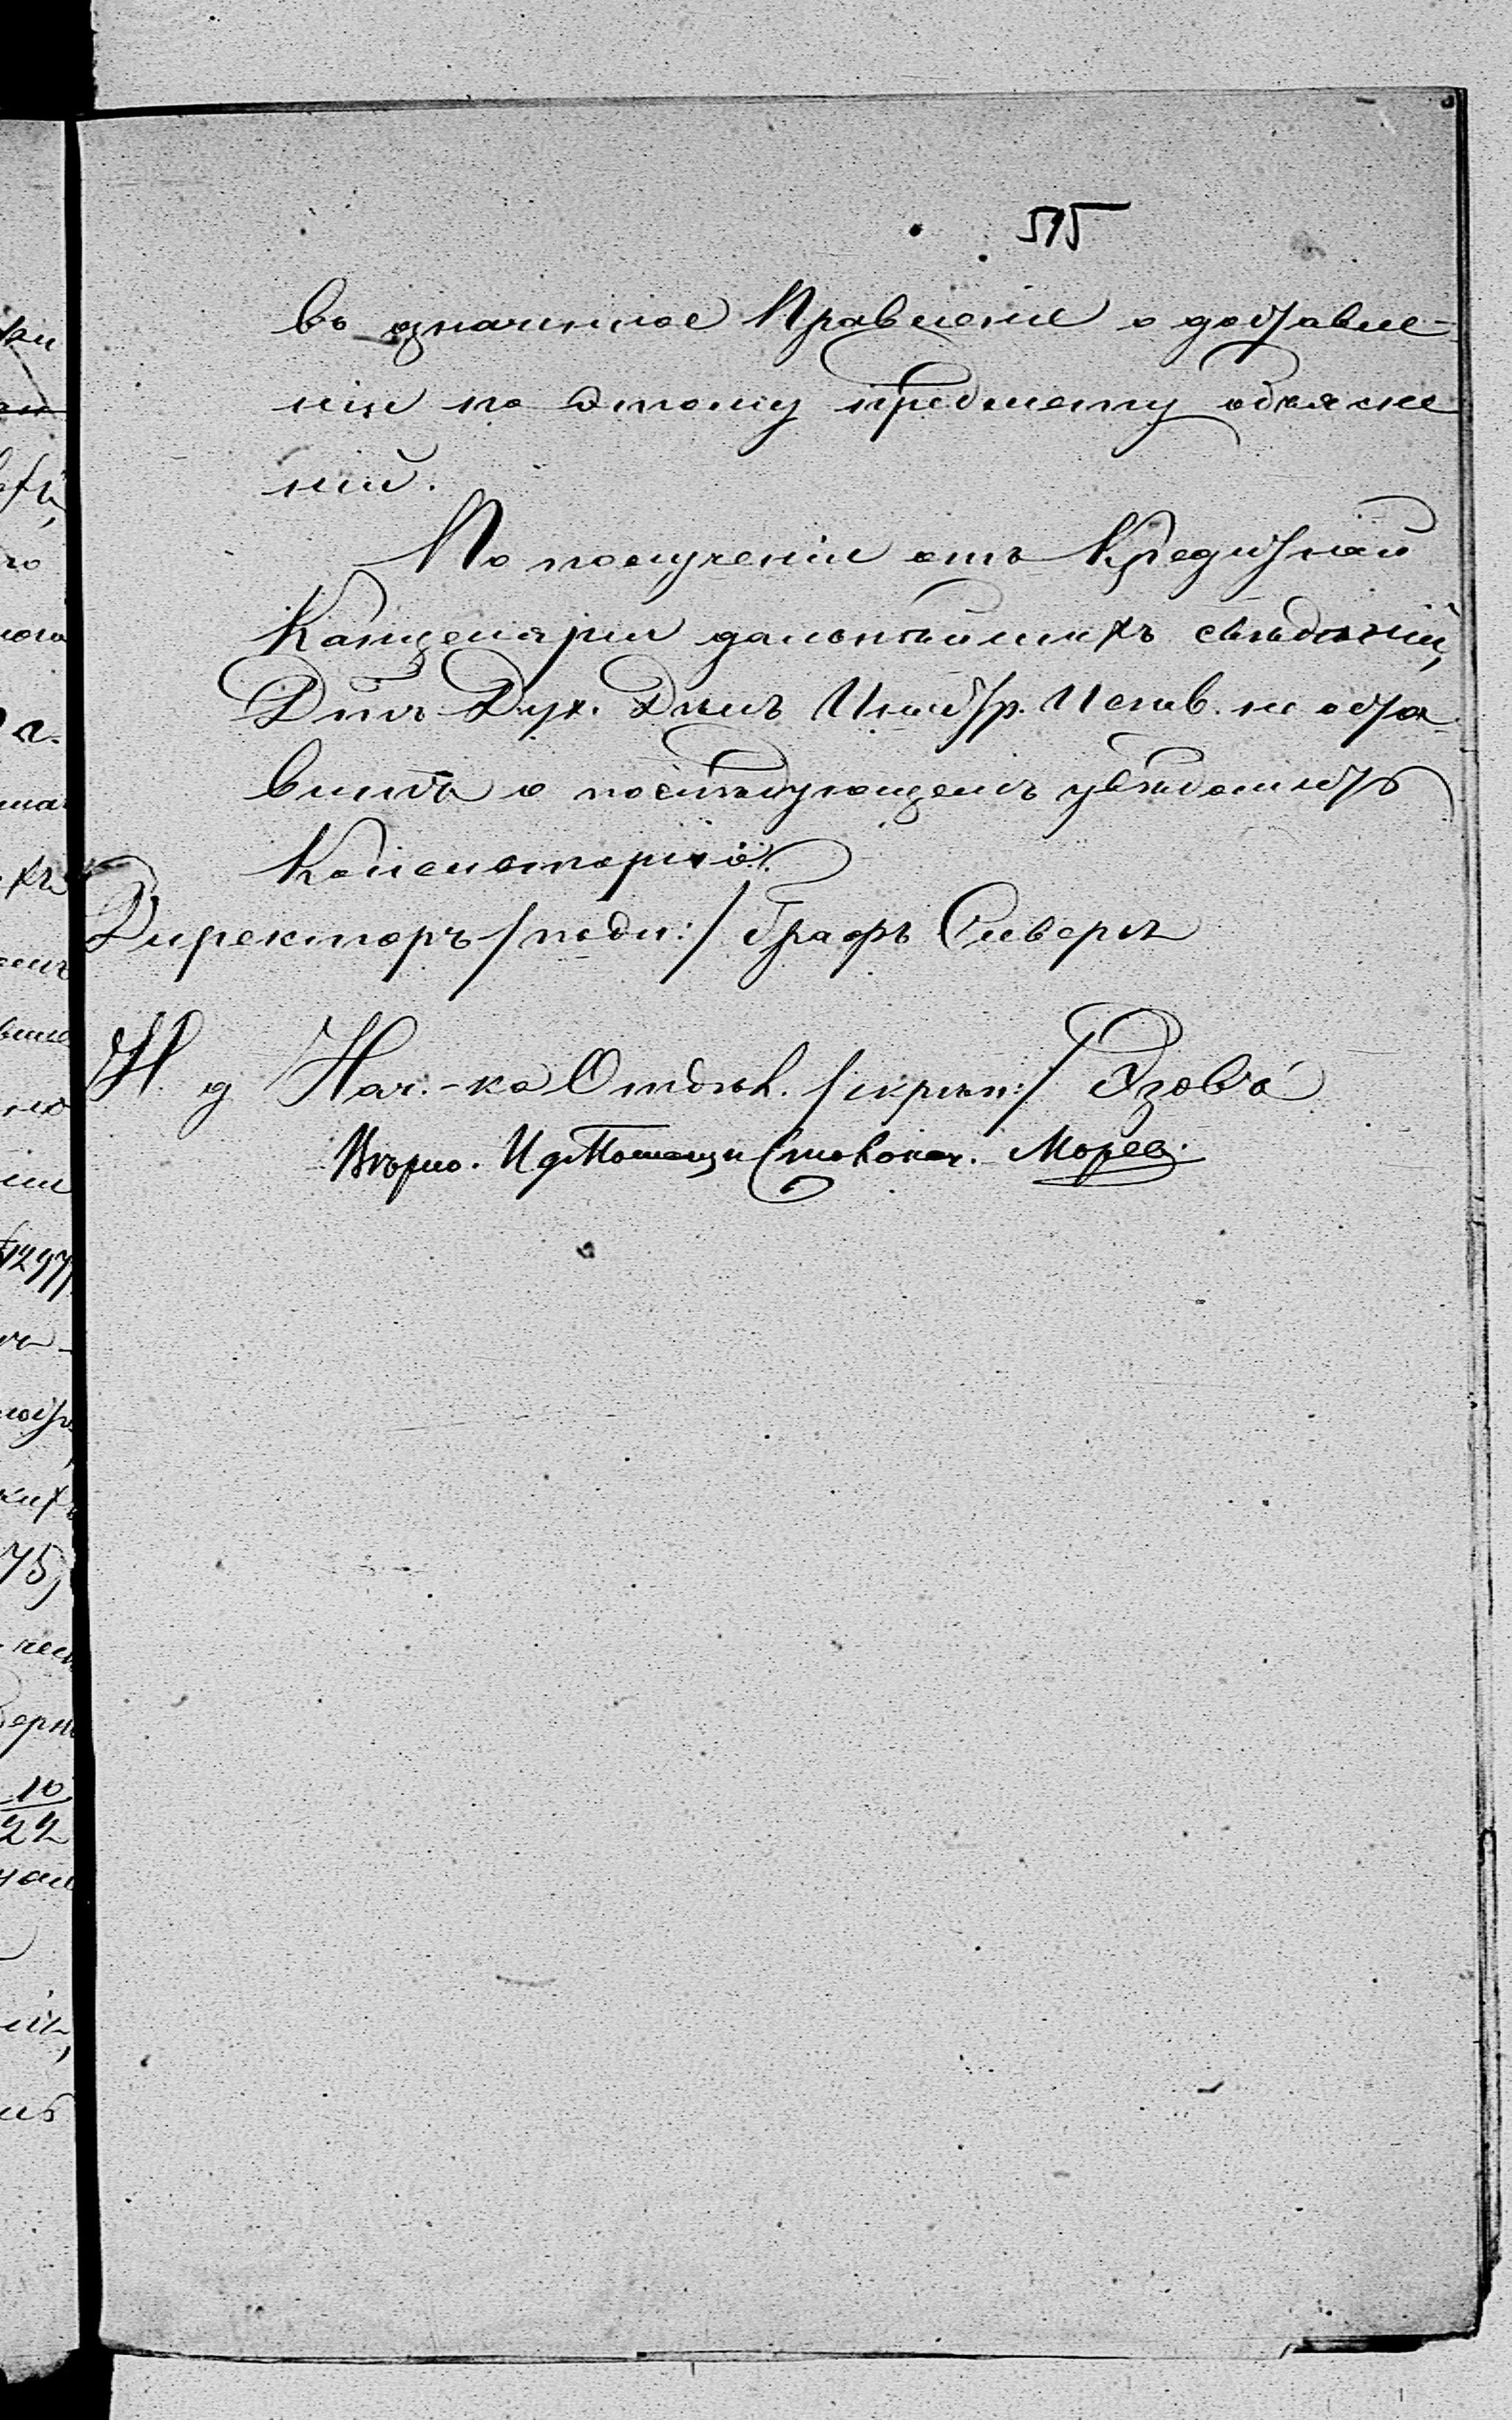 515
въ означенное Правленіе о доставле-
ніи по этому предмету объясне
ній.
По полученіи отъ Кредитной
Канцеляріи дальнѣйшихъ свѣдѣній,
Дптъ Дух. Дѣлъ Иностр. Испов. не оста
витъ о послѣдующемъ увѣдомить
Консисторію.
Директоръ /подп:/ Графъ Сиверсъ
И д Нач.-ка Отдѣл. /скрѣп:/ Язовъ
Вѣрно. И д Помощн Столонач. Морев